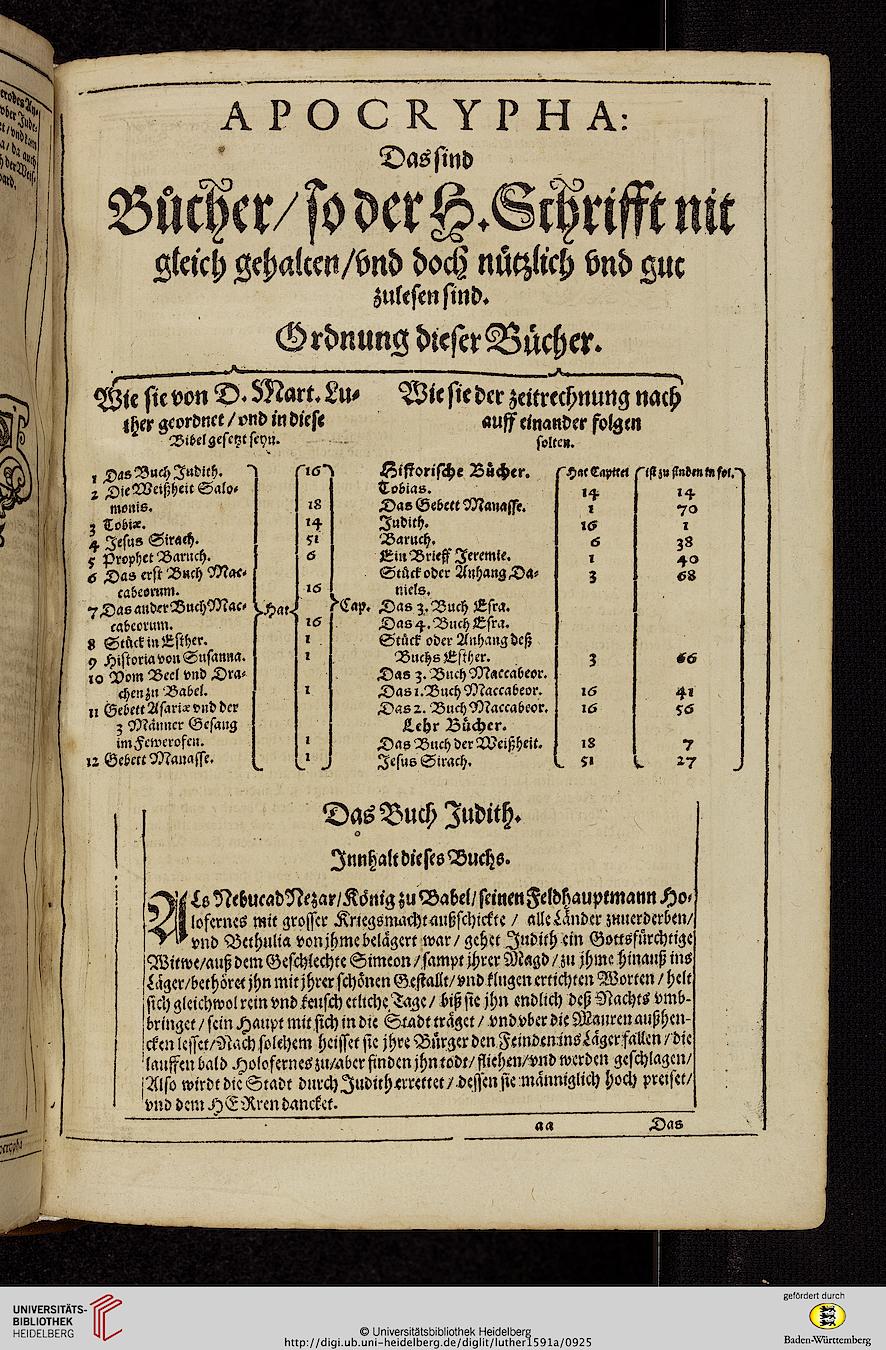 APOCRYPHA:
Das sind
Bůcher/ so der H. Schrifft nit
gleich gehalten/vnd doch nützlich vnd gut
zulesen sind.
Ordnung dieser Bücher.
Wie sie von D. Mart. Lu-
ther geordnet / vnd in diese
Bibel gesetzt seyn.
1 Das Buch Judith. 16
2 Die Weißheit Salo-
monis. 18
3 Tobiæ. 14
4 Jesus Sirach. 51
5 Prophet Baruch. 6
6 Das erst Buch Mac-
cabeorum. 16
7 Das ander Buch Mac-
cabeorum. 16
Hat
Cap.
8 Stück in Esther. 1
9 Historia von Susanna. 1
10 Vom Beel vnd Dra-
chen zu Babel. 1
11 Gebett Asariæ vnd der
3 Männer Gesang
im Fewerofen. 1
12 Gebett Manasse. 1
Wie sie der zeitrechnung nach
auff einander folgen
solten.
Historische Bücher. Hat Capittel ist zu finden in fol.
Tobias. 14 14
Das Gebett Manasse. 1 70
Judith. 16 1
Baruch. 6 38
Ein Brieff Jeremie. 1 40
Stück oder Anhang Da- 3 68
niels.
Das 3. Buch Esra.
Das 4. Buch Esra.
Stück oder Anhang deß
Buchs Esther. 3 66
Das 3. Buch Maccabeor.
Das 1. Buch Maccabeor. 16 41
Das 2. Buch Maccabeor. 16 56
Lehr Bücher.
Das Buch der Weißheit. 18 7
Jesus Sirach. 51 27
Das Buch Judith.
Jnnhalt dieses Buchs.
ALs NebucadNezar/König zu Babel/seinen Feldhauptmann Ho-
lofernes mit grosser Kriegsmacht außschickte / alle Länder zuuerderben/
vnd Bethulia von jhme belägert war / gehet Judith ein Gottsfürchtige
Witwe/auß dem Geschlechte Simeon / sampt jhrer Magd / zu jhme hinauß ins
Läger/bethöret jhn mit jhrer schönen Gestallt/vnd klugen ertichten Worten / helt
sich gleichwol rein vnd keusch etliche Tage / biß sie jhn endlich deß Nachts vmb-
bringet / sein Haupt mit sich in die Stadt träget / vnd vber die Mauren außhen-
cken lesset/Nach solchem heisset sie jhre Bürger den Feinden ins Läger fallen / die
lauffen bald Holofernes zu/aber finden jhn todt/ fliehen/vnd werden geschlagen/
Also wirdt die Stadt durch Judith errettet / dessen sie männiglich hoch preiset/
vnd dem HERren dancket.
aa Das
UNIVERSITÄTS-
BIBLIOTHEK
HEIDELBERG
© Universitätsbibliothek Heidelberg
http://digi.ub.uni-heidelberg.de/diglit/luther1591a/0925
gefördert durch
Baden-Württemberg